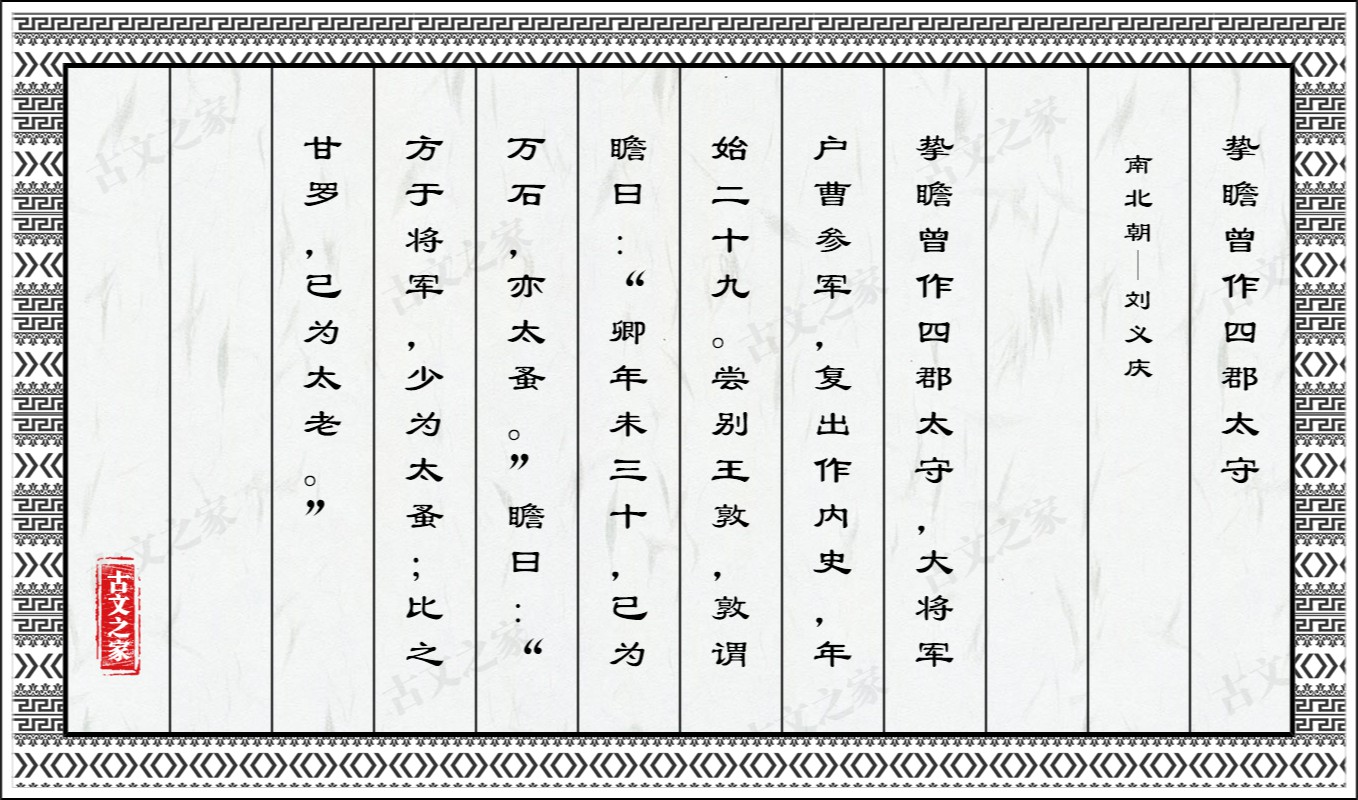 挚瞻曾作四郡太守
南北朝—刘义庆
挚瞻曾作四郡太守，大将军
户曹参军，复出作内史，年
始二十九。尝别王敦，敦谓
瞻曰：“卿年未三十，已为
万石，亦太蚤。”瞻曰：“
方于将军，少为太蚤；比之
甘罗，已为太老。”
古文之家